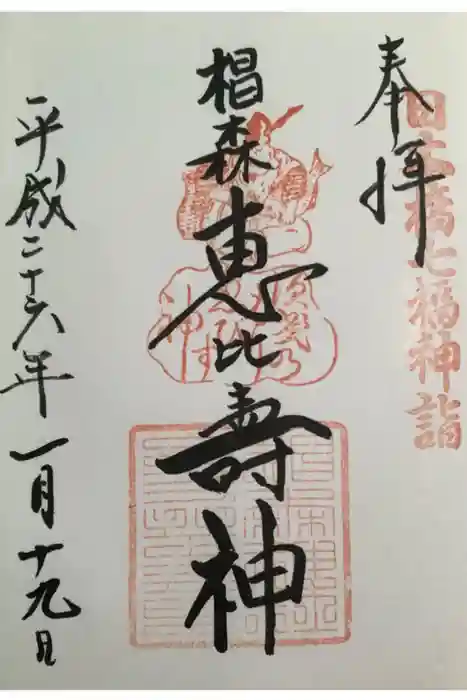 日本橋七福神詣
奉拝
椙森恵比壽神
平成二十六年一月十九日